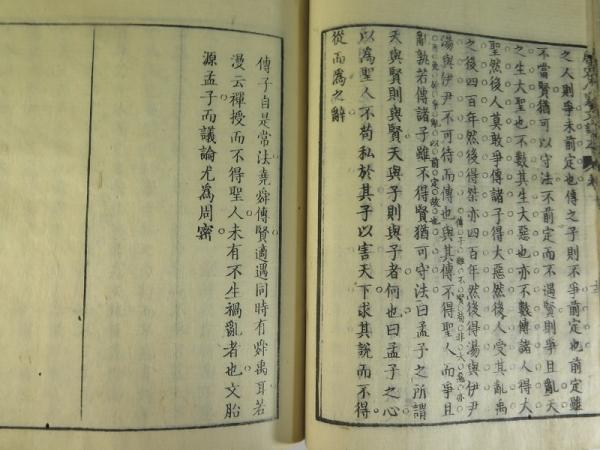 之人則爭未前定也傳之子則不爭前定也前定雖
不當賢猶可以守法不前定而不遇賢則爭且亂天
之生大聖也不數其生大惡也亦不數傳諸人得大
聖然後人莫敢爭傳諸子得大惡然後人受其亂禹
之後四百年然後得桀亦四百年然後得湯與伊尹
湯與伊尹不可待而傳也與其傳不得聖人而爭且
亂孰若傳諸子雖不得賢猶可守法曰孟子之所謂
天與賢則與賢天與子則與子者何也曰孟子之心
以為聖人不苟私於其子以害天下求其說而不得
從而為之辭
傳子自是常法堯舜傳賢適遇同時有舜禹耳若
漫云禪授而不得聖人未有不生禍亂者也文胎
源孟子而議論尤為周密